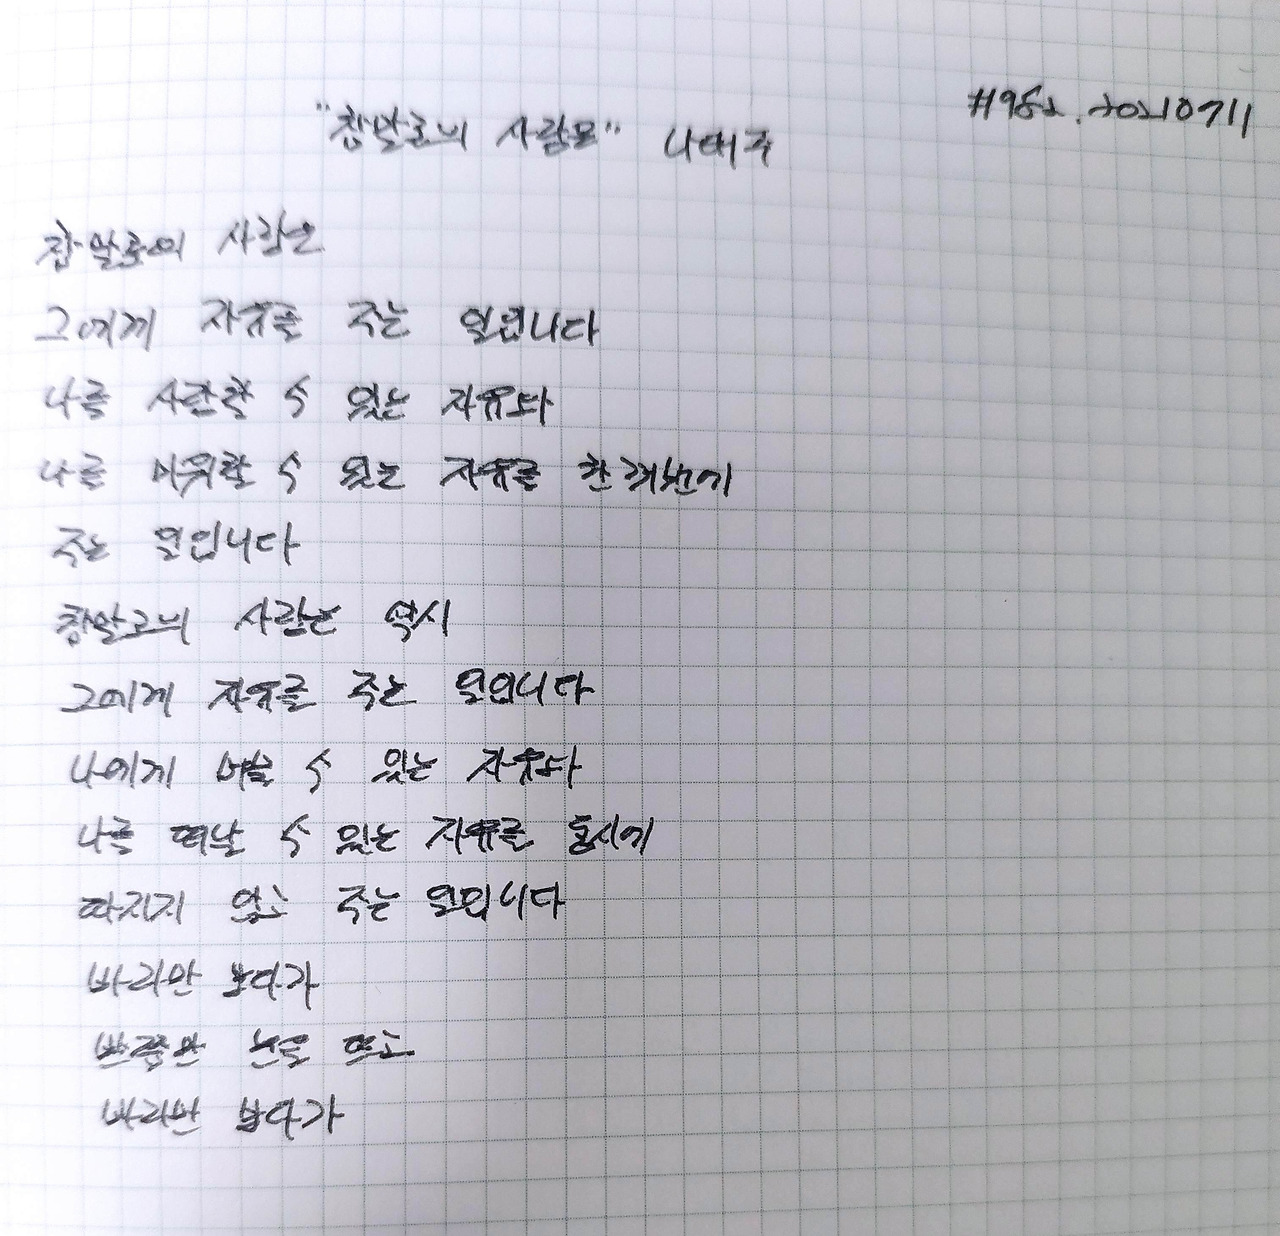 #952. 20210711
"참말로의 사랑은" 나태주
참말로의 사랑은
그에게 자유를 주는 일입니다
나를 사랑할 수 있는 자유와
나를 미워할 수 있는 자유를 한꺼번에
주는 일입니다
참말로의 사랑은 역시
그에게 자유를 주는 일입니다
나에게 머물 수 있는 자유와
나를 떠날 수 있는 자유를 동시에
따지지 않고 주는 일입니다
바라만 보다가
반쯤만 눈을 뜨고
바라만 보다가